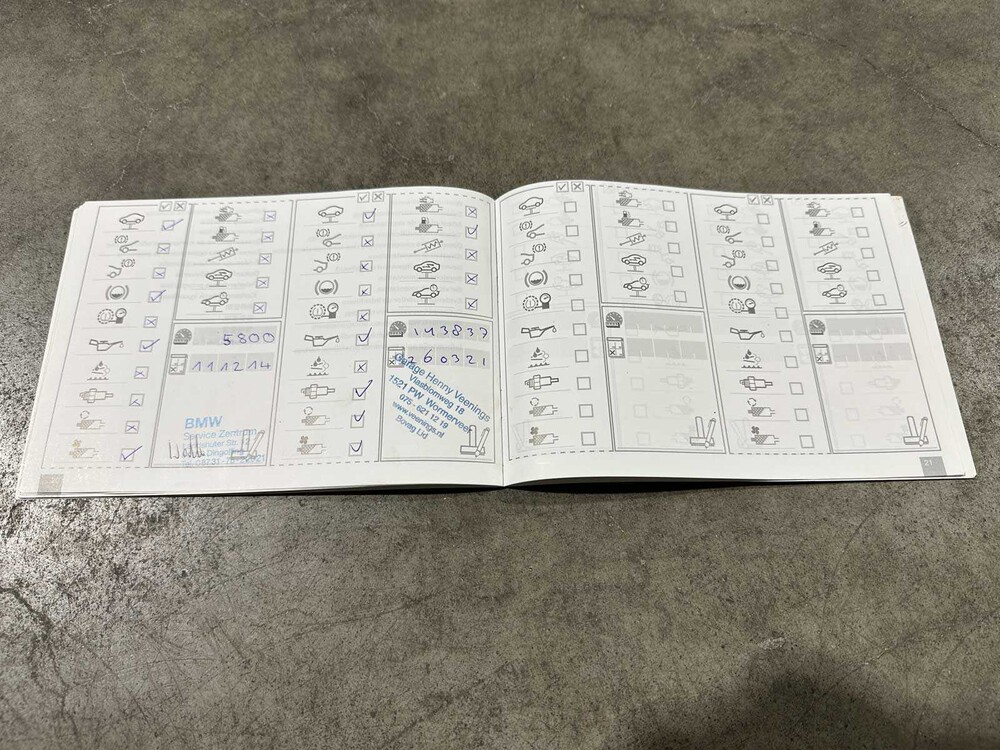 5800
111214
BMW
Service Zentrum
143837
260321
Garage Henny Veenings
Vlasblomweg 18
1521 PW Wormerveer
075 - 621 12 19
www.veenings.nl
Bovag Lid
21